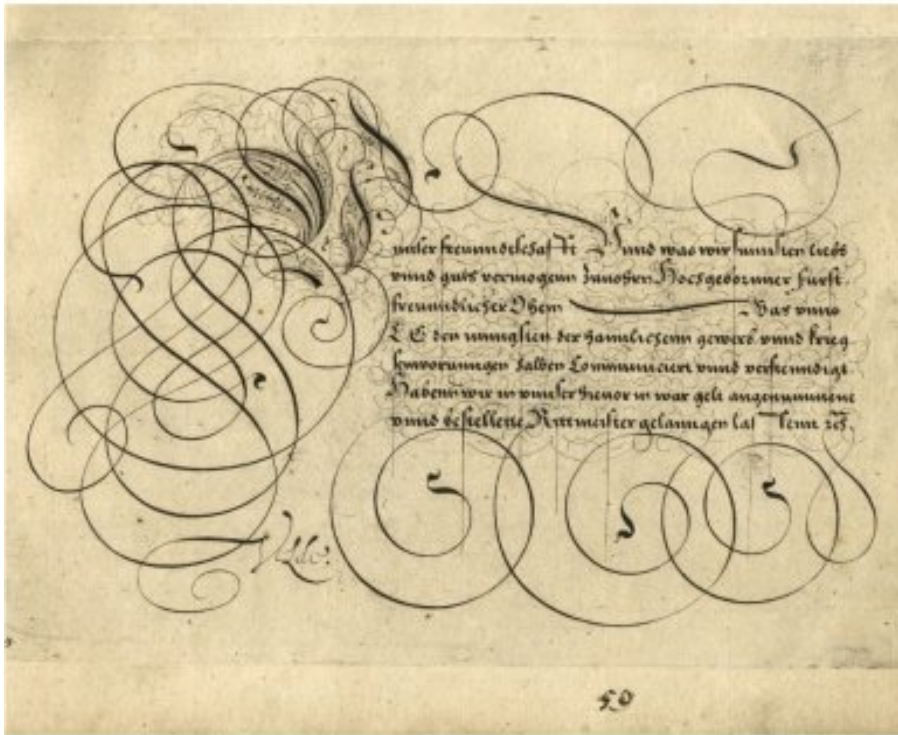 unser freunndtschafft Vnnd was wir sunnsten liebs
vnnd guts vermogenn Zuuohrn Hochgebornner furst
freunndlicher Ohem Das vnns
E E den
der haimlichenn gewerb vnnd krieg
halben Communiciert vnnd verkenndigt
Habenn wir in vnnser in war gelt angenummene
vnnd bestellette Rittmeister gelanngen lassenn
50